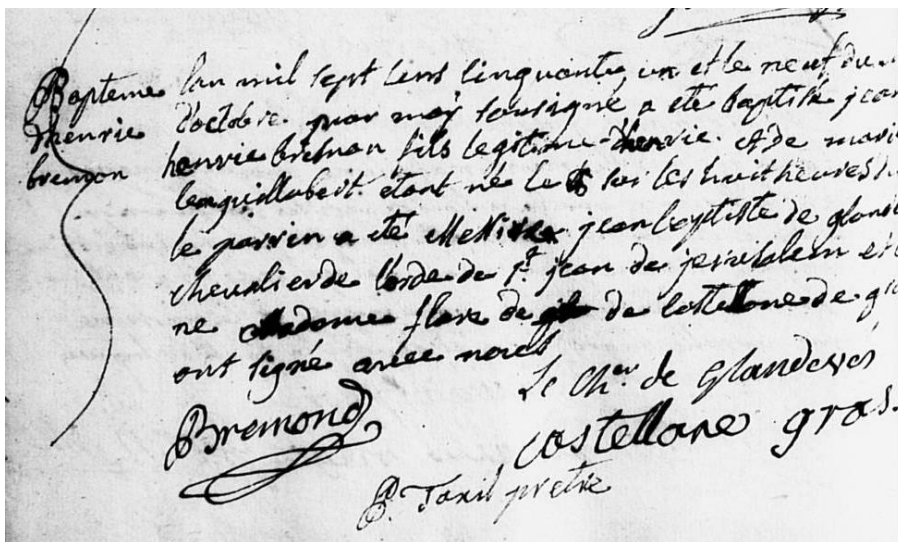 Bapteme
dhenrie
bremon
lan mil sept cens cinquante un et le neuf du
d'octobre par moy sousigné a eté baptisé jean
henrie bremon fils legitime dhenrie et de marie
étant né le soir les huit heures
le parrin a eté Messire jean baptiste de glande
chevalier de l'orde de st jean de jerusalem et
ne Madame flore de de castellane de gra
ont signé avec nous
Le Chier de Glandevés
Bremond
castellane gras
P. Taxil pretre